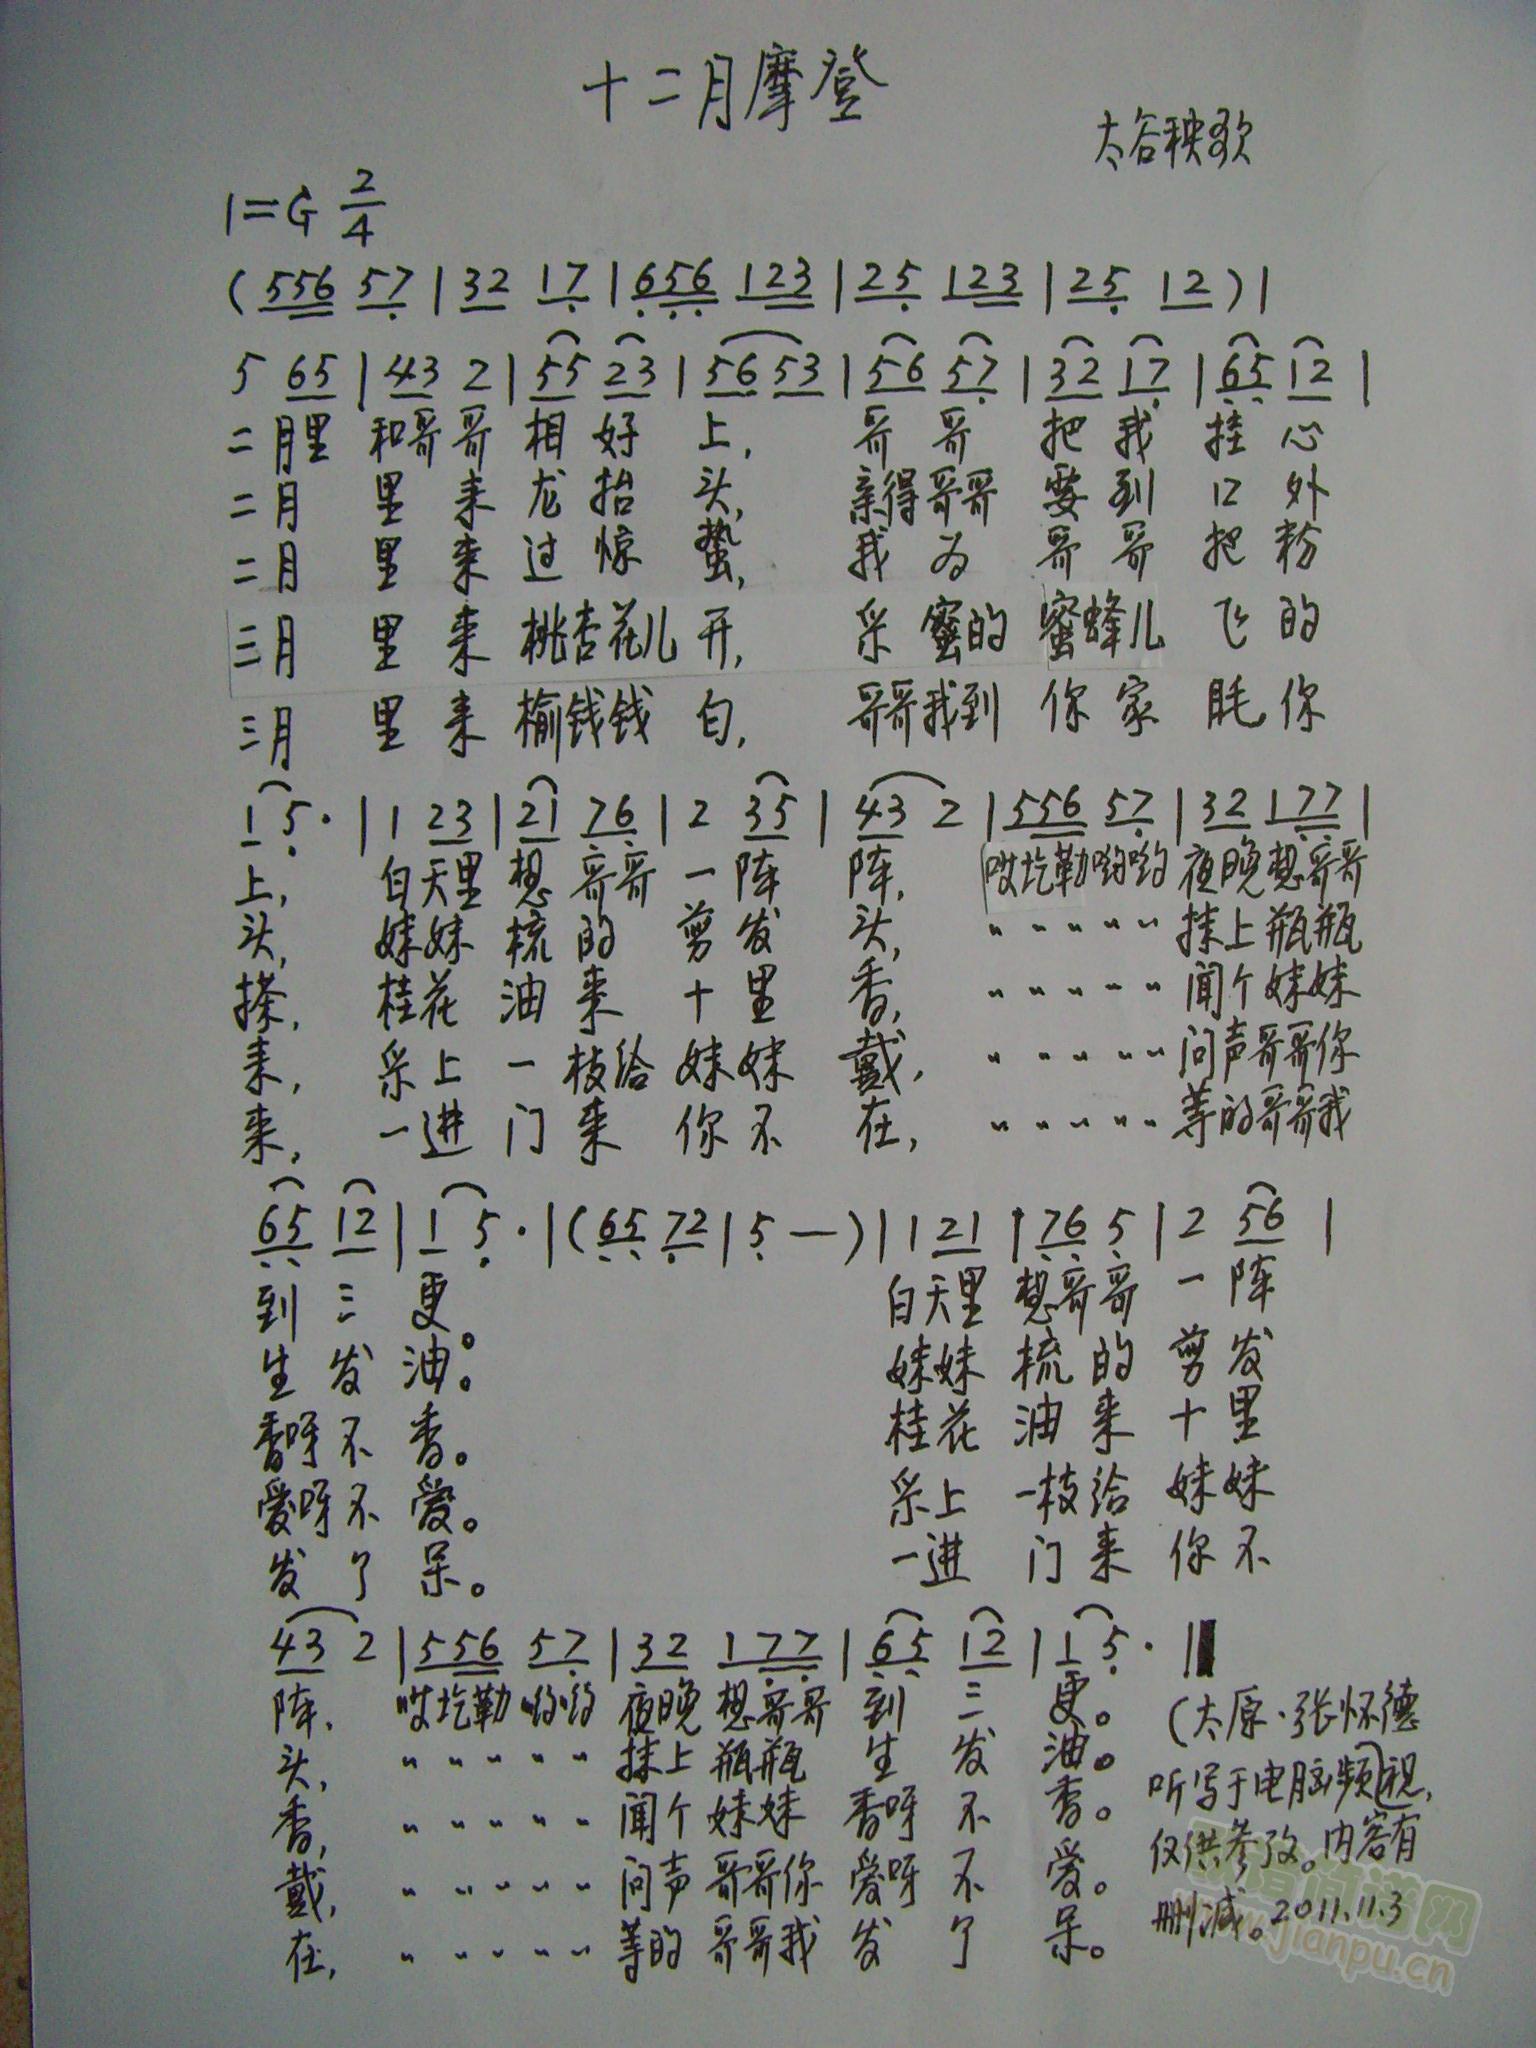 十二月摩登
太谷秧歌
1=G 2/4
(556 57|32 17|656 123|25 123|25 12)|
5 65|43 2|55 23|56 53|56 57|32 17|65 12|
二月里 和哥哥 相好 上, 哥哥 把我 挂心
二月 里来 龙抬 头, 亲得哥哥 要到 口外
二月 里来 过惊 蛰, 我为 哥哥 把粉
三月 里来 桃杏花儿 开, 采蜜的 蜜蜂儿 飞的
三月 里来 榆钱钱 白, 哥哥我到 你家 眊你
1 5·|1 23|21 76|2 35|43 2|556 57|32 177|
上, 白天里 想哥哥 一阵 阵, 哎圪勒哟哟 夜晚想哥哥
头, 妹妹 梳的 剪发 头, 〃〃〃〃〃 抹上瓶瓶
搽, 桂花 油来 十里 香, 〃〃〃〃〃 闻个妹妹
来, 采上 一枝给 妹妹 戴, 〃〃〃〃〃 问声哥哥你
来, 一进 门来 你不 在, 〃〃〃〃〃 等的哥哥我
65 12|1 5·|(65 72|5 —)|1 21|76 5|2 56|
到三 更。 白天里 想哥哥 一阵
生发 油。 妹妹 梳的 剪发
香呀不 香。 桂花 油来 十里
爱呀不 爱。 采上 一枝给 妹妹
发了 呆。 一进 门来 你不
43 2|556 57|32 177|65 12|1 5·‖
阵, 哎圪勒哟哟 夜晚想哥哥 到三 更。
头, 〃〃〃〃〃 抹上瓶瓶 生发 油。
香, 〃〃〃〃〃 闻个妹妹 香呀不 香。
戴, 〃〃〃〃〃 问声哥哥你 爱呀不 爱。
在, 〃〃〃〃〃 等的哥哥我 发了 呆。
(太原·张怀德
听写于电脑频视,
仅供参改。内容有
删减。2011.11.3
歌谱简谱网
www.jianpu.cn